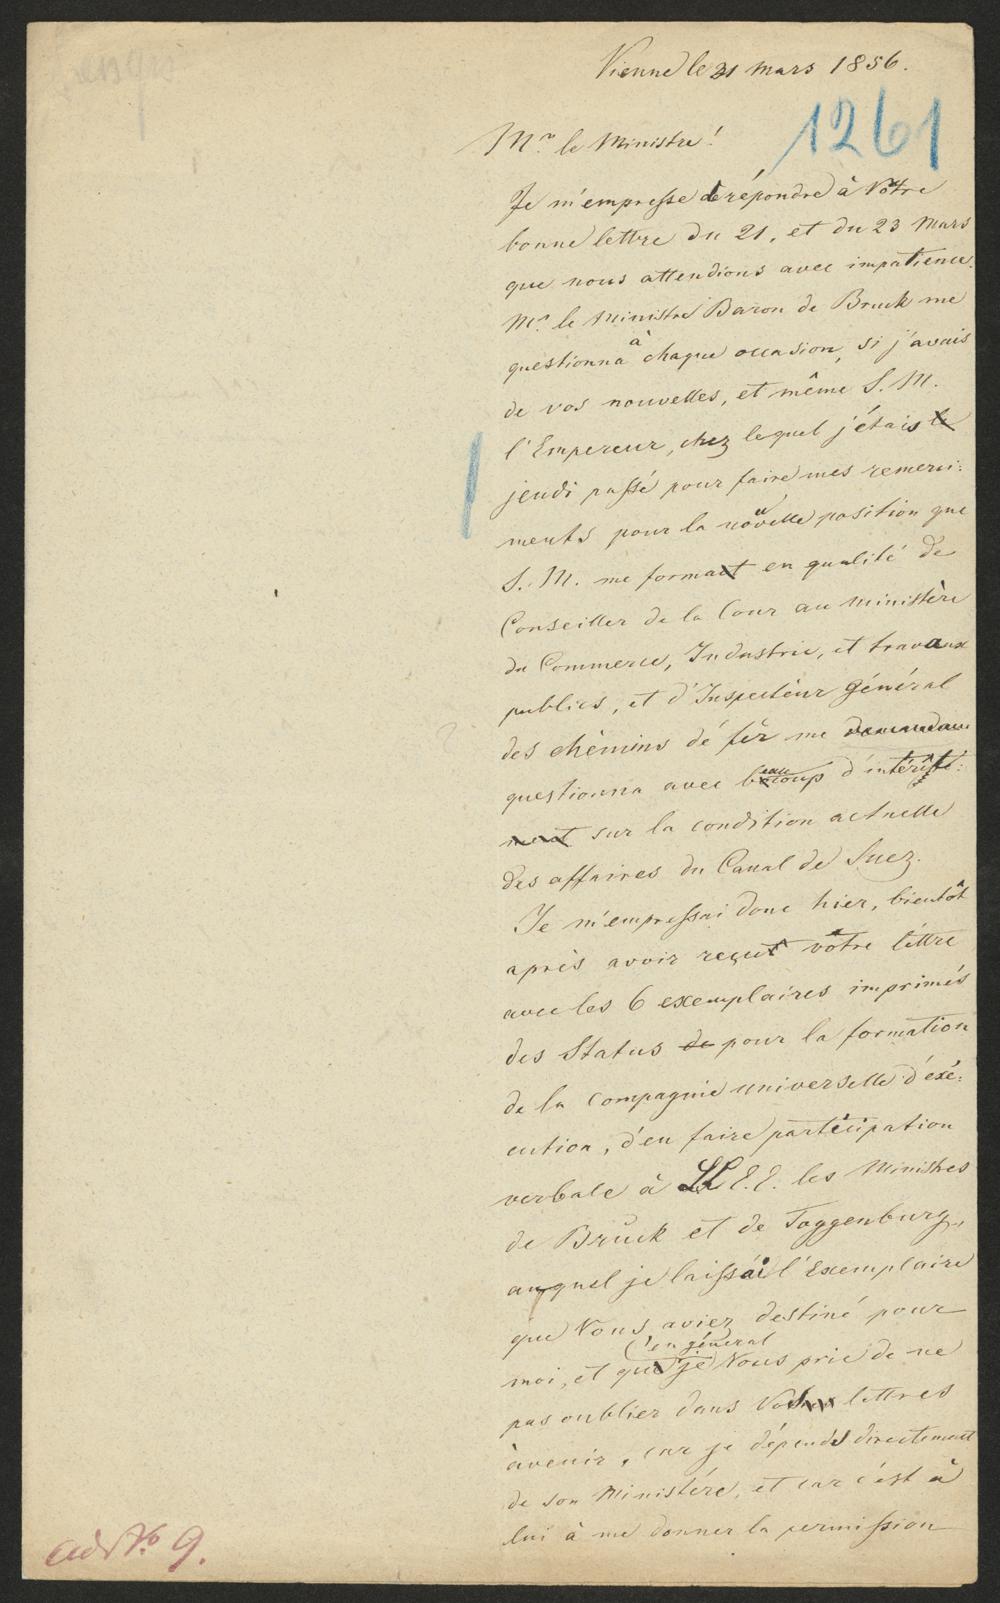 Vienne le 31 mars 1856.
1261
Mr. le Ministre!
Je m'empresse de répondre à Votre
bonne lettre du 21, et du 23 Mars
que nous attendions avec impatience.
Mr. le Ministre Baron de Bruck me
questionna à chaque occasion, si j'avais
de vos nouvelles, et même S. M.
l'Empereur, chez lequel j'étais le
jeudi passé pour faire mes remerci:
ments pour la nouvelle position que
S. M. me formait en qualité de
Conseiller de la Cour au ministère
du Commerce, Industrie, et travaux
publics, et d'Inspectéur général
des chémins dé fér me
questionna avec beaucoup d'intérêt
ment sur la condition actuelle
des affaires du Canal de Suez.
Je m'empressai donc hier, bientôt
après avoir reçut vôtre léttre
avec les 6 exemplaires imprimés
des Status de pour la formation
de la compagnie universelle d'exé:
cution, d'en faire participation
verbale à LL E. E. les Ministres
de Bruck et de Toggenburg,
auquel je laissai l'Exemplaire
que Vous aviez destiné pour
moi, et que (en général je Vous prie de ne
pas oublier dans Vos lettres
àvenir, car je dépends directement
de son Ministére, et car c'est à
lui à me donner la permission
ad No. 9.